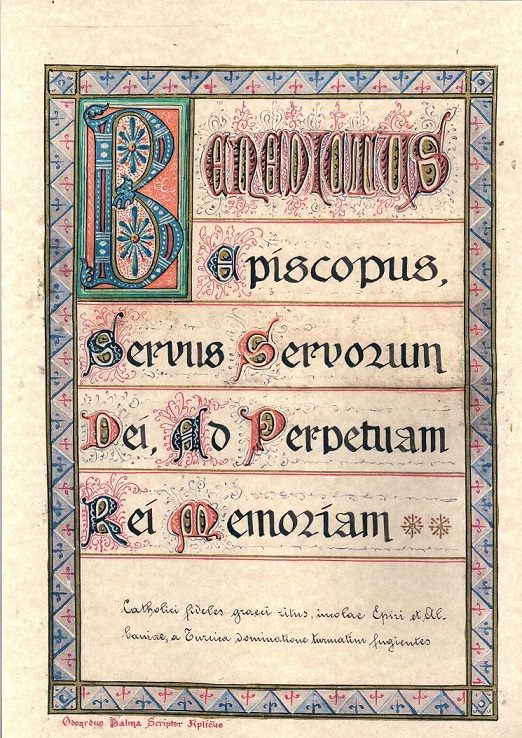 Benedictus
Episcopus,
Servus Servorum
Dei, Ad Perpetuam
Rei Memoriam
Catholici fideles graeci ritus, incolae Epiri et Al-
baniae, a Turcica dominatione turmatim fugientes
Odvardus Palma Scriptor Aplicus